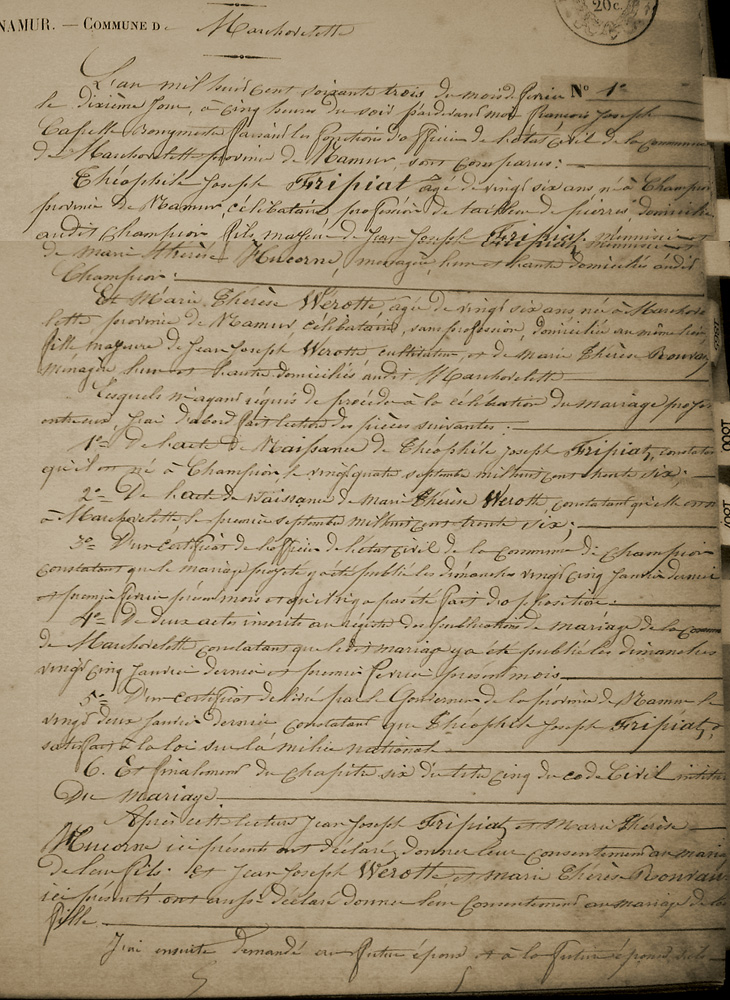 NAMUR. — COMMUNE D Marchovelette
20c.
L'an mil huit cent soixante trois du mois de février N° 1er
le dixième jour, à cinq heures du soir pardevant moi François Joseph
Capelle Bourgmestre faisant les fonctions d'officier de l'état civil de la commune
de Marchovelette province de Namur, sont comparus: —
Théophile Joseph Fripiat agé de vingt six ans né à Champion
province de Namur, célibataire, profession de tailleur de pierres domicilié
audit Champion fils majeur de Jean Joseph Fripiat, menuisier et
de Marie Thérèse Hucorne, ménagère, l'un et l'autre domiciliés audit
Champion: —
Et Marie Thérèse Werotte, agée de vingt six ans né à Marchove
lette province de Namur, célibataire, sans profession, domiciliée au même lieu,
fille majeure de Jean Joseph Werotte cultivateur, et de Marie Thérèse
Ménagère l'un et l'autre domiciliés audit Marchovelette —
Lesquels m'ayant requis de procéder à la célibation du mariage projeté
entr'eux, j'ai d'abord fait lecture des pièces suivantes: —
1° De l'acte de Naissance de Théophile Joseph Fripiat, constatant
qu'il est né à Champion, le vingt quatre septembre mil huit cent trente six; —
2° De l'acte de naissance de Marie Thérèse Werott, constatant qu'elle est née
à Marchovelette le premier septembre mil huit cent trente six; —
3° D'un certificat de l'officier de l'état civil de la commune de Champion
constatant que le mariage projeté y a été publié les dimanches vingt cinq Janvier dernier
et premier février présent mois et qu'il n'y a pas été fait d'opposition: —
4° De deux actes inscrits au registre des publications de mariage de la commune
de Marchovelette constatant que ledit mariage y a été publié les dimanches
vingt cinq Janvier dernier et premier février présent mois —
5° D'un certificat délivré par le Gouverneur de la province de Namur le
vingt deux Janvier dernier constatant que Théophile Joseph Fripiat, a
satisfait à la loi sur la milice nationale —
6. Et finalement du chapitre six du titre cinq du code Civil intitulé
Du Mariage —
Après cette lecture Jean Joseph Fripiat et Marie Thérèse
Hucorne ici présents ont déclaré donner leur consentement au mariage
de leur fils. Et Jean Joseph Werotte et Marie Thérèse
ici présents ont aussi déclaré donner leur consentement au mariage de leur
fille —
J'ai ensuite demandé au futur époux et à la future épouse s'ils